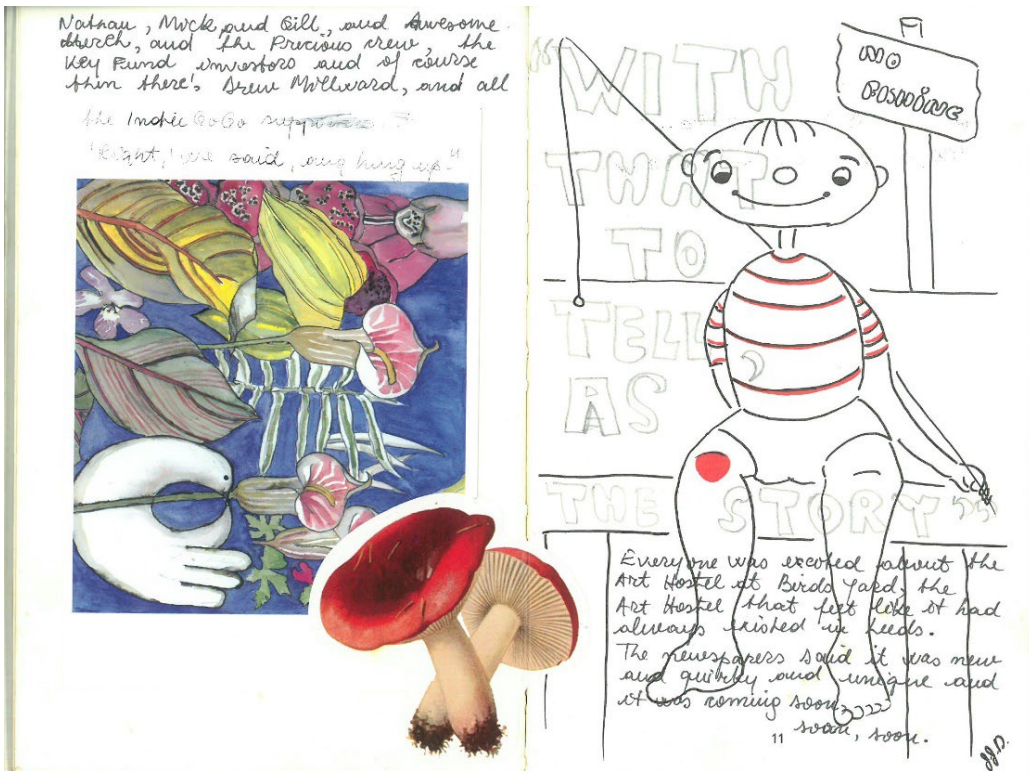 Nathan, Mick and Gill, and Awesome
Merch, and the Precious crew, the
Key Fund investors and of course
then there's Drew Millward, and all
the Indie GoGo
'Right,' we said, and hung up."
NO
FISHING
"WITH
THAT
TO
TELL,
AS
THE STORY"
Everyone was excited about the
Art Hostel at Birds Yard, the
Art Hostel that felt like it had
always existed in Leeds.
The newspapers said it was new
and quirky and unique and
it was coming soon,
soon, soon.
11
JJD.